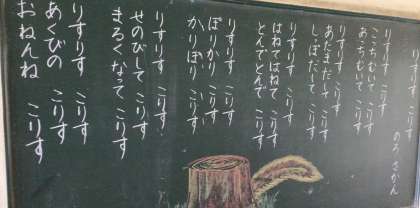 りすりす こりす
のろ さかん
りすりす こりす
こっちむいて こりす
あっちむいて こりす
りすりす こりす
あたまだして こりす
しっぽだして こりす
りすりす こりす
はねてはねて こりす
とんでとんで こりす
りすりす こりす
ぽっかり こりす
かりぽり こりす
りすりす こりす
せのびして こりす
まるくなって こりす
りすりす こりす
あくびの こりす
おねんね こりす